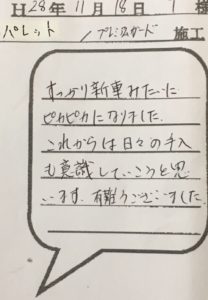 H28年11月18日 1 様
パレット / プレミアムガード 施工
すっかり新車みたいに
ピカピカになりました。
これからは日々の手入
も意識していこうと思
います。有難うございました